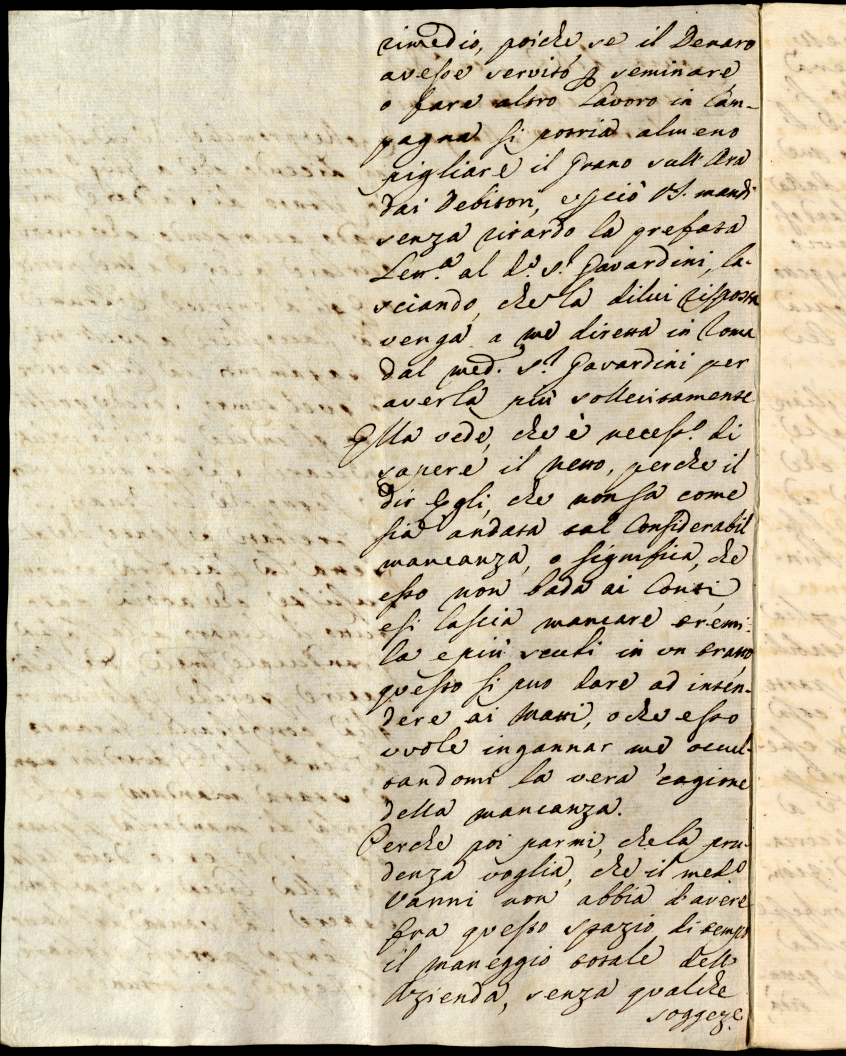 rimedio, poiche se il Denaro
avesse servito p seminare
o fare altro Lavoro in Cam-
pagna si potria almeno
pigliare il Grano sull'Ara
dai Debitori, e pciò VS. mandi
senza ritardo la prefata
Lett.ª al d.º S.r Gavardini, la-
sciando, che la dilui risposta
venga a me diretta in Roma
dal med. S.r Gavardini per
averla più sollecitamente
Ella vede, che è necess.º di
sapere il netto, perche il
dir Egli, che non sa come
sia andata tal Considerabil
mancanza, o significa, che
esso non bada ai Conti,
e si lascia mancare tremi-
la e più scudi in un tratto,
questo si può dare ad inten-
dere ai Matti, o che esso
vuole ingannar me occul-
tandomi la vera cagione
della mancanza.
Perche poi parmi, che la pru-
denza voglia, che il med.º
Vanni non abbia d'avere
fra questo spazio di tempo
il maneggio totale dell'
Azienda, senza qualche
soggez.e